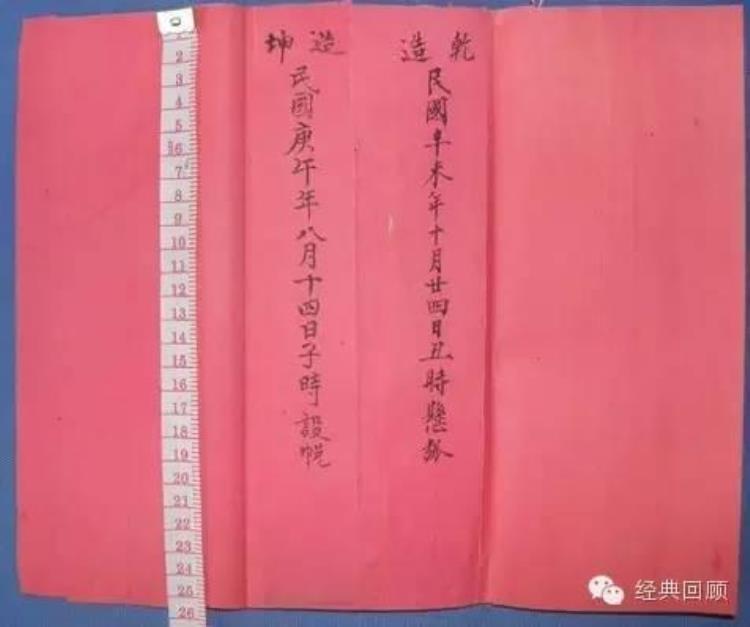 乾造
民國辛未年十月廿四日丑時懸弧
坤造
民國庚午年八月十四日子時設帨
0
1
2
3
4
5
6
7
8
9
10
11
12
13
14
15
16
17
18
19
20
21
22
23
24
25
26
经典回顾